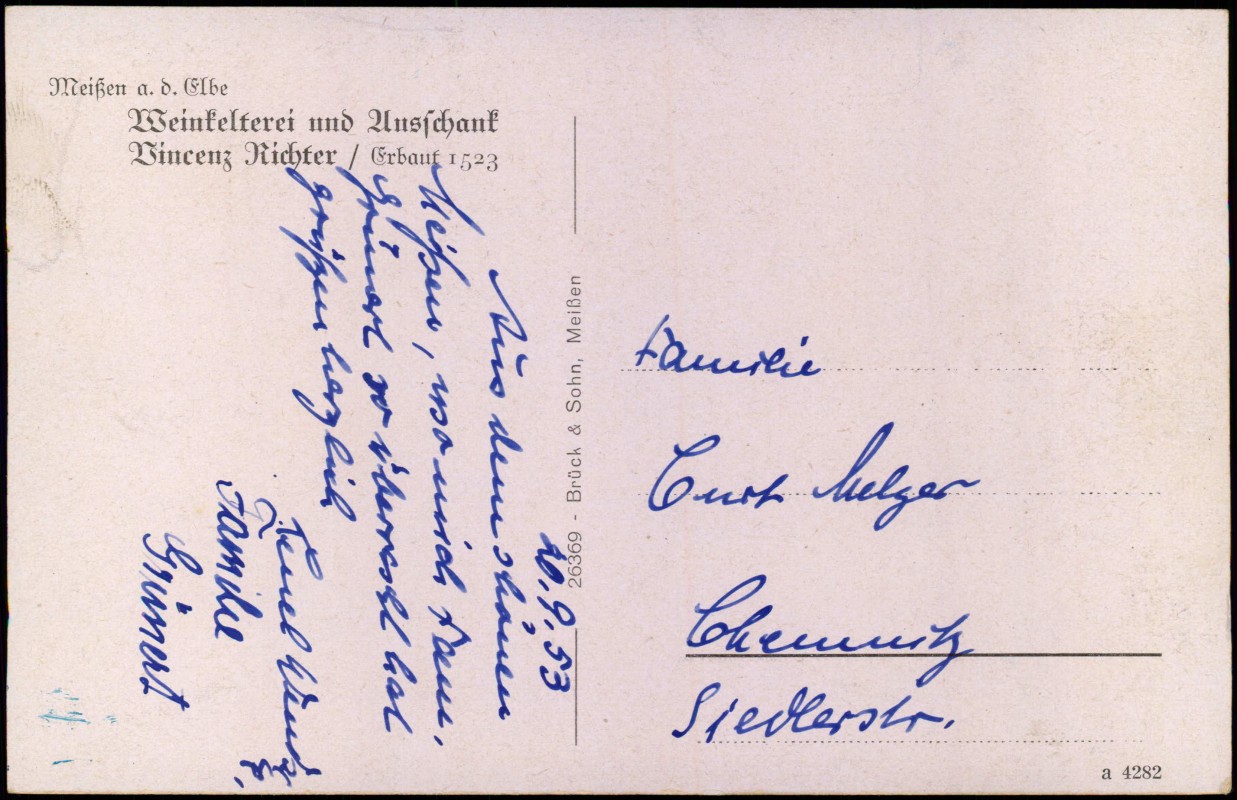 Meißen a. d. Elbe
Weinkelterei und Ausschank
Vincenz Richter / Erbaut 1523
20.9.53
Aus dem schönen
Meißen, wo mich Fam.
Grünert so überrascht hat
grüßen herzlich
Familie
Grünert
26369 - Brück & Sohn, Meißen
Familie
Curt Melzer
Chemnitz
Siedlerstr.
a 4282